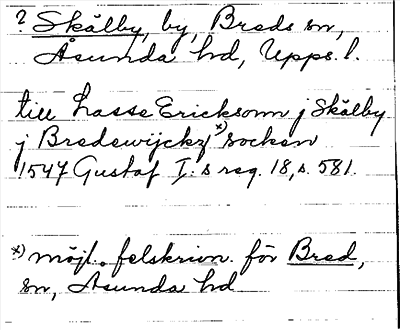 ? Skålby, by, Breds sn,
Åsunda hd, Upps. l.
till Lasse Ericksonn j Skålby
j Bredewijckz *) socken
1547 Gustaf I:s reg. 18, s. 581.
*) möjl. felskrivn. för Bred,
sn, Åsunda hd